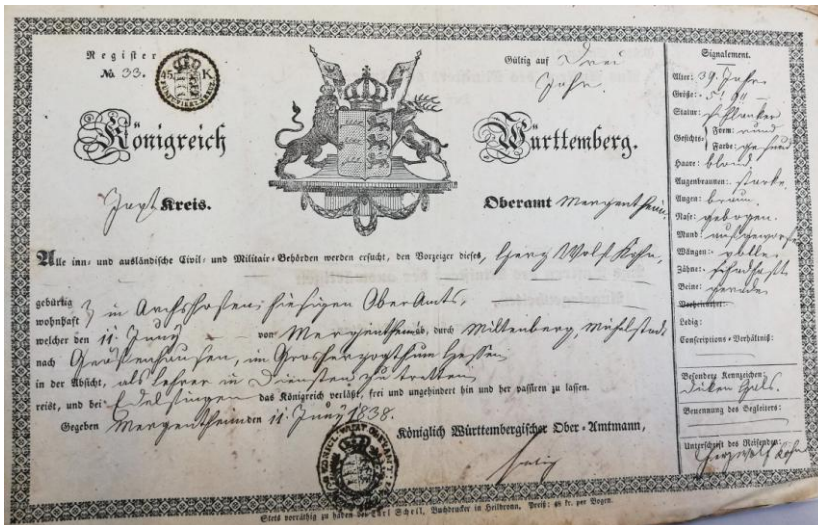 Register
№ 33.
15 K.
Gültig auf Drei
Jahr.
Königreich Württemberg.
Jaxt Kreis.
Oberamt Mergentheim.
Alle inn- und ausländische Civil- und Militair-Behörden werden ersucht, den Vorzeiger dieses, Herz Wolf Kohn,
gebürtig
wohnhaft } in Archshofen, hiesigen OberAmts,
welcher den 11. Juny von Mergentheim ab, durch Miltenberg, Michelstadt
nach Großenhausen, im Grosherzogthum Hessen
in der Absicht, als Lehrer in Diensten zu tretten
reist, und bei Edelfingen das Königreich verläßt, frei und ungehindert hin und her passiren zu lassen.
Gegeben Mergentheim den 11. Juny 1838.
Königlich Württembergischer Ober-Amtmann,
Stets vorräthig zu haben bei Carl Schell, Buchdrucker in Heilbronn, Preiß: 48 kr. per Bogen.
Signalement.
Alter: 39 Jahr.
Größe: 5'
Statur: schlanker
Gesichts- { Form: rund
Farbe: gesund
Haare: blond.
Augenbraunen: starke.
Augen: braun.
Nase: gebogen.
Mund: aufgeworfen
Wangen: volle
Zähne:
Beine: gerade.
Verheirathet:
Ledig:
Conscriptions-Verhältniß:
Besondere Kennzeichen:
Diken Hals.
Benennung des Begleiters:
Unterschrift des Reisenden:
Herz Wolf Kohn